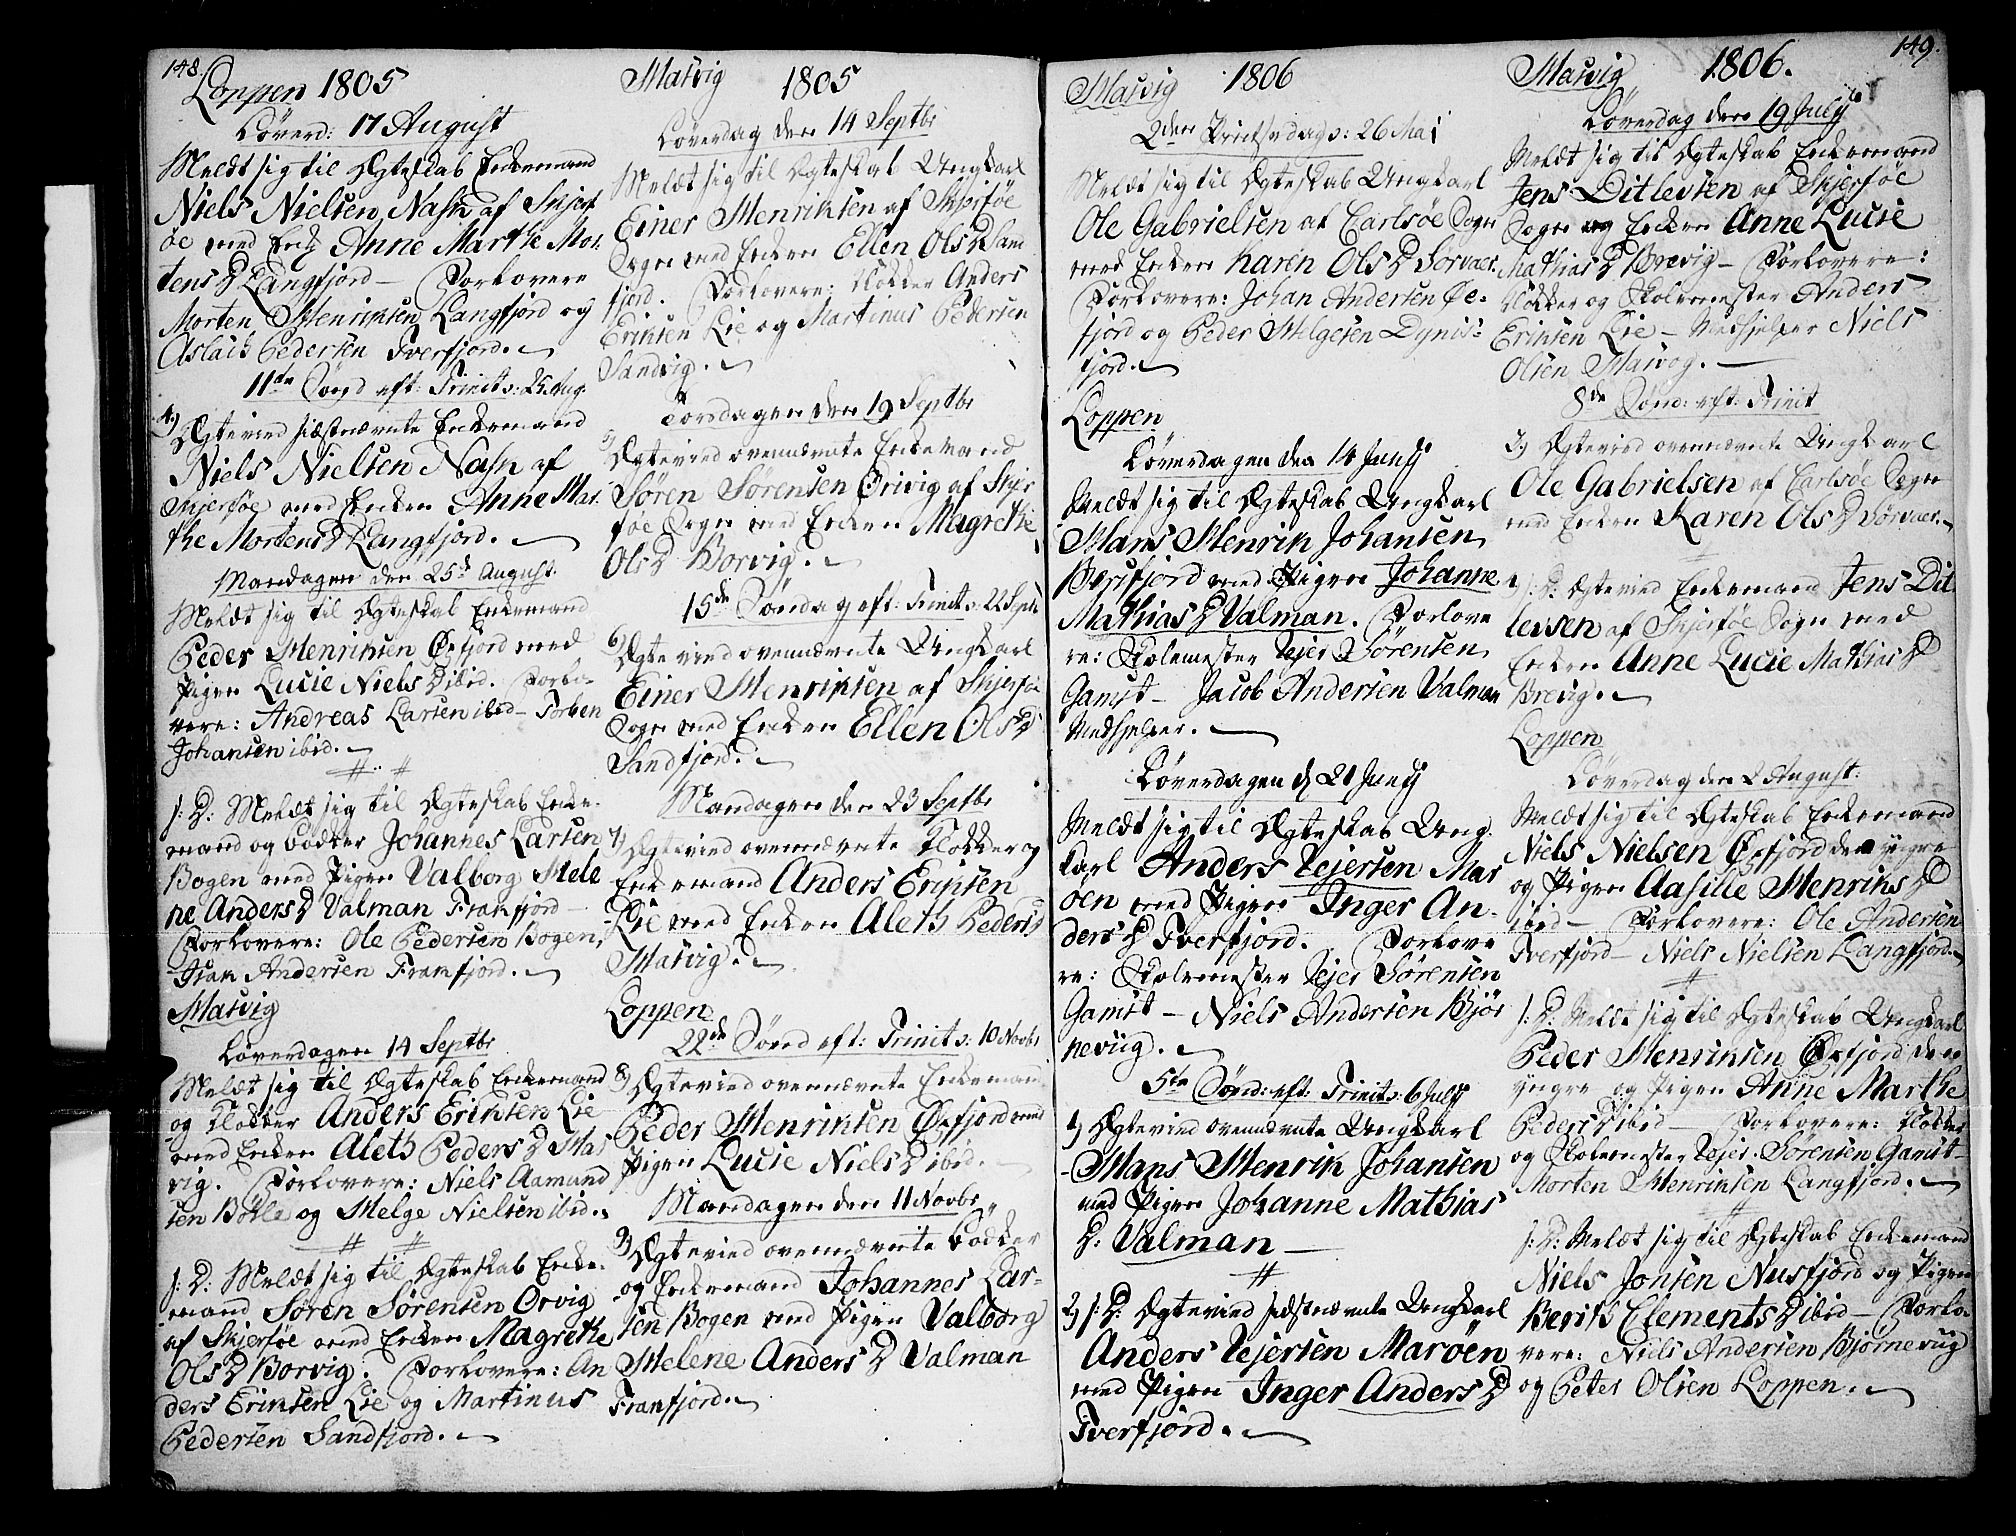 148.
Loppen 1805
Löverd: 17 August
Meldt sig til Ægteskab Enkemand
Niels Nielsen Nash af Skjerf
öe med Enke Anne Marthe Mor-
tens D Langfjord — Forlovere
Morten Henriksen Langfjord og
Aslach Pedersen Tverfjord.
11de Sönd eft: Trinit s: 25 Aug.
4) Ægtevied sidstnævnte Enkemand
Niels Nielsen Nash af
Skjerföe med Enken Anne Mar-
the Mortens D Langfjord.
Mandagen den 25de August.
Meldt sig til Ægteskab Enkemand
Peder Henriksen Öxfjord med
Pigen Lucie Niels D ibid. Forlo-
vere: Andreas Larsen ibid — Torben
Johansen ibid.
s: D: Meldt sig til Ægteskab Enke-
mand og Bödker Johannes Larsen
Bogen med Pigen Valborg Hele
ne Anders D Valman Framfjord —
Forlovere: Ole Pedersen Bogen,
Isak Andersen Framfjord.
Hasvig
Löverdagen 14 Septbr
Meldt sig til Ægteskab Enkemand
og Klokker Anders Eriksen Lie
med Enken Aleth Peders D Has
vig. Forlovere: Niels Aamund
sen Böele og Helge Nielsen ibid.
s: D: Meldt sig til Ægteskab Enke-
mand Sören Sörensen Orvig
af Skjerföe med Enken Magrethe
Ols D Borvig. Forlovere: An
ders Eriksen Lie og Martinus
Pedersen Sandfjord.
Hasvig 1805
Löverdag den 14 Septbr
Meldt sig til Ægteskab Ungkarl
Einer Henriksen af Skjerföe
Sogn med Enken Ellen Ols D Sand
fjord. Forlovere: Klokker Anders
Eriksen Lie og Martinus Pedersen
Sandvig.
Torsdagen den 19 Septbr
5) Ægtevied ovennævnte Enkemand
Sören Sörensen Örivig af Skjer
föe Sogn med Enken Magrethe
Ols D Borvig.
15de Söndag eft: Trinit s: 22 Septbr
6) Ægtevied ovennævnte Ungkarl
Einer Henriksen af Skjerföe
Sogn med Enken Ellen Ols D
Sandfjord.
Mandagen den 23 Septbr
7) Ægtevied ovennævnte Klokker og
Enkemand Anders Eriksen
Lie med Enken Aleth Peders D
Hasvig.
Loppen
22de Sönd eft: Trinit s: 10 Novbr
8) Ægtevied ovennævnte Enkemand
Peder Henriksen Öxfjord med
Pigen Lucie Niels D ibid.
Mandagen den 11 Novbr
9) Ægtevied ovennævnte Bödker
og Enkemand Johannes Lar-
sen Bogen med Pigen Valborg
Helene Anders D Valman
Framfjord.
Hasvig 1806
2den Pintsedag s: 26 Mai
Meldt sig til Ægteskab Ungkarl
Ole Gabrielsen af Carlsöe Sogn
med Enken Karen Ols D Sörvaer.
Forlovere: Johan Andersen Öx-
fjord og Peder Helgesen Dynis-
fjord.
Loppen
Löverdagen den 14 Junij
Meldt sig til Ægteskab Ungkarl
Hans Henrik Johansen
Bersfjord med Pigen Johanne
Mathias D Valman. Forlove
re: Skolemester Lejer Sörensen
Gamst — Jacob Andersen Valman
Medhjelper.
Löverdagen d 21 Junij
Meldt sig til Ægteskab Ung-
karl Anders Lejersen Mar
öen med Pigen Inger An-
ders D Tverfjord. Forlove
re: Skolemester Lejer Sörensen
Gamst — Niels Andersen Björ
nevug.
5te Sönd: eft: Trinit s: 6 July
1) Ægtevied ovennævnte Ungkarl
Hans Henrik Johansen
med Pigen Johanne Mathias
D. Valman —
2) s: D: Ægtevied sidstnævnte Ungkarl
Anders Lejersen Maröen
med Pigen Inger Anders D
Tverfjord.
149.
Hasvig 1806.
Löverdag den 19 July
Meldt sig til Ægteskab Enkemand
Jens Ditlevsen af Skjerföe
Sogn og Enken Anne Lucie
Mathias D Brevig — Forlovere:
Klokker og Skolemester Anders
Eriksen Lie — Medhjelper Niels
Olsen Hasvog.
8de Sönd: eft: Trinit
3) Ægtevied ovennævnte Ungkarl
Ole Gabrielsen af Carlsöe Sogn
med Enken Karen Ols D Sörvaer.
4) s: D: Ægtevied Enkemand Jens Dit
levsen af Skjerföe Sogn med
Enken Anne Lucie Mathias D
Brevig.
Loppen
Löverdag den 2 August:
Meldt sig til Ægteskab Enkemand
Niels Nielsen Öxfjord den yngre
og Pigen Aasille Henriks D
ibid — Forlovere: Ole Andersen
Tverfjord — Niels Nielsen Langfjord.
s: D: Meldt sig til Ægteskab Ungkarl
Peder Henriksen Öxfjord den
yngre og Pigen Anne Marthe
Peders D ibid — Forlovere: Klokker
og Skolemester Lejer Sörensen Gamst —
Morten Henriksen Langfjord.
s: D: Meldt sig til Ægteskab Enkemand
Niels Jonsen Nusfjord og Pigen
Berith Clements D ibid — Forlo-
vere: Niels Andersen Bjørnevug
og Peter Olsen Loppen.